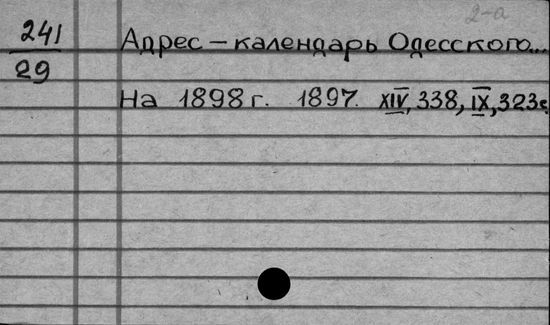 2-а
241
29
Адрес – календарь Одесского...
На 1898 г. 1897. XIV, 338, IX, 323с.